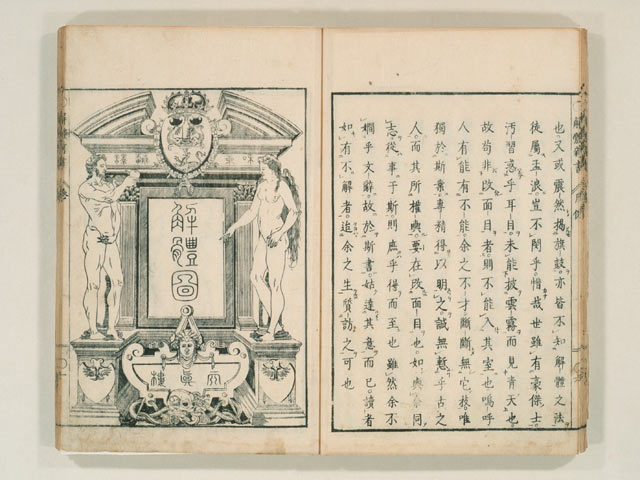 也又或震然揚旗鼓亦皆不知解體之法
徒屬孟浪豈不閔乎惜哉世雖有豪傑士
汚習惑乎耳目未能披雲霧而見青天也
故苟非改面目者則不能入其室也嗚呼
人有能有不能余之不才斷斷無它技唯
獨於斯業專精得以明之誠無慙乎古之
人而其所權輿要在改面目也如與同
志從事于斯則庶乎得而至也雖然余不
嫻乎文辭故於斯書姑達其意而已讀者
如有不解者追余之生質訪之可也
解體圖
天眞樓